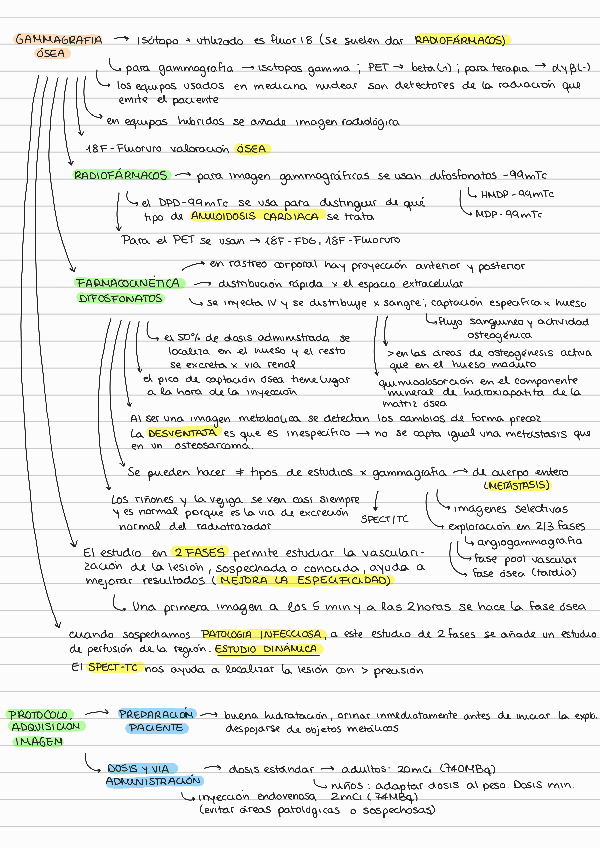 GAMMAGRAFIA → Isótopo + utilizado es fluor 18 (se suelen dar RADIOFÁRMACOS)
ÓSEA
para gammografia → isotopos gamma ; PET → beta(+) ; para terapia → α y β(-)
los equipos usados en medicina nuclear son detectores de la radiación que
emite el paciente
en equipos hibridos se añade imagen radiológica
18F-Fluoruro valoración ÓSEA
RADIOFÁRMACOS → para imagen gammagráficas se usan difosfonatos -99mTc
HMDP-99mTc
MDP-99mTc
el DPD-99mTc se usa para distinguir de qué
tipo de AMILOIDOSIS CARDIACA se trata
Para el PET se usan → 18F-FDG, 18F-Fluoruro
FARMACOCINÉTICA
DIFOSFONATOS
en rastreo corporal hay proyección anterior y posterior
distribución rápida x el espacio extracelular
se inyecta IV y se distribuye x sangre; captación especifica x hueso
flujo sanguineo y actividad
osteogénica
> en las áreas de osteogénesis activa
que en el hueso maduro
quimioabsorción en el componente
mineral de hidroxiapatita de la
matriz ósea
el 50% de dosis administrada se
localiza en el hueso y el resto
se excreta x via renal
el pico de captación ósea tiene lugar
a la hora de la inyección
Al ser una imagen metabolica se detectan los cambios de forma precoz
La DESVENTAJA es que es inespecífico → no se capta igual una metástasis que
en un osteosarcoma.
Se pueden hacer ≠ tipos de estudios x gammagrafia → de cuerpo entero
(METÁSTASIS)
SPECT/TC
imágenes selectivas
exploración en 2/3 fases
angiogammagrafia
fase pool vascular
fase ósea (tardía)
Los riñones y la vejiga se ven casi siempre
y es normal porque es la via de excreción
normal del radiotrazador
El estudio en 2 FASES permite estudiar la vasculari-
zación de la lesión, sospechada o conocida, ayuda a
mejorar resultados (MEJORA LA ESPECIFICIDAD)
Una primera imagen a los 5 min y a las 2 horas se hace la fase ósea
cuando sospechamos PATOLOGIA INFECCIOSA, a este estudio de 2 fases se añade un estudio
de perfusión de la región. ESTUDIO DINÁMICA
El SPECT-TC nos ayuda a localizar la lesión con > precisión
PROTOCOLO
ADQUISICION
IMAGEN
PREPARACIÓN
PACIENTE
→ buena hidratación, orinar inmediatamente antes de iniciar la expl.
despojarse de objetos metálicos
DOSIS Y VIA
ADMINISTRACIÓN
→ dosis estándar → adultos: 20mCi (740MBq)
niños: adaptar dosis al peso. Dosis min.
inyección endovenosa 2mCi (74MBq)
(evitar áreas patológicas o sospechosas)